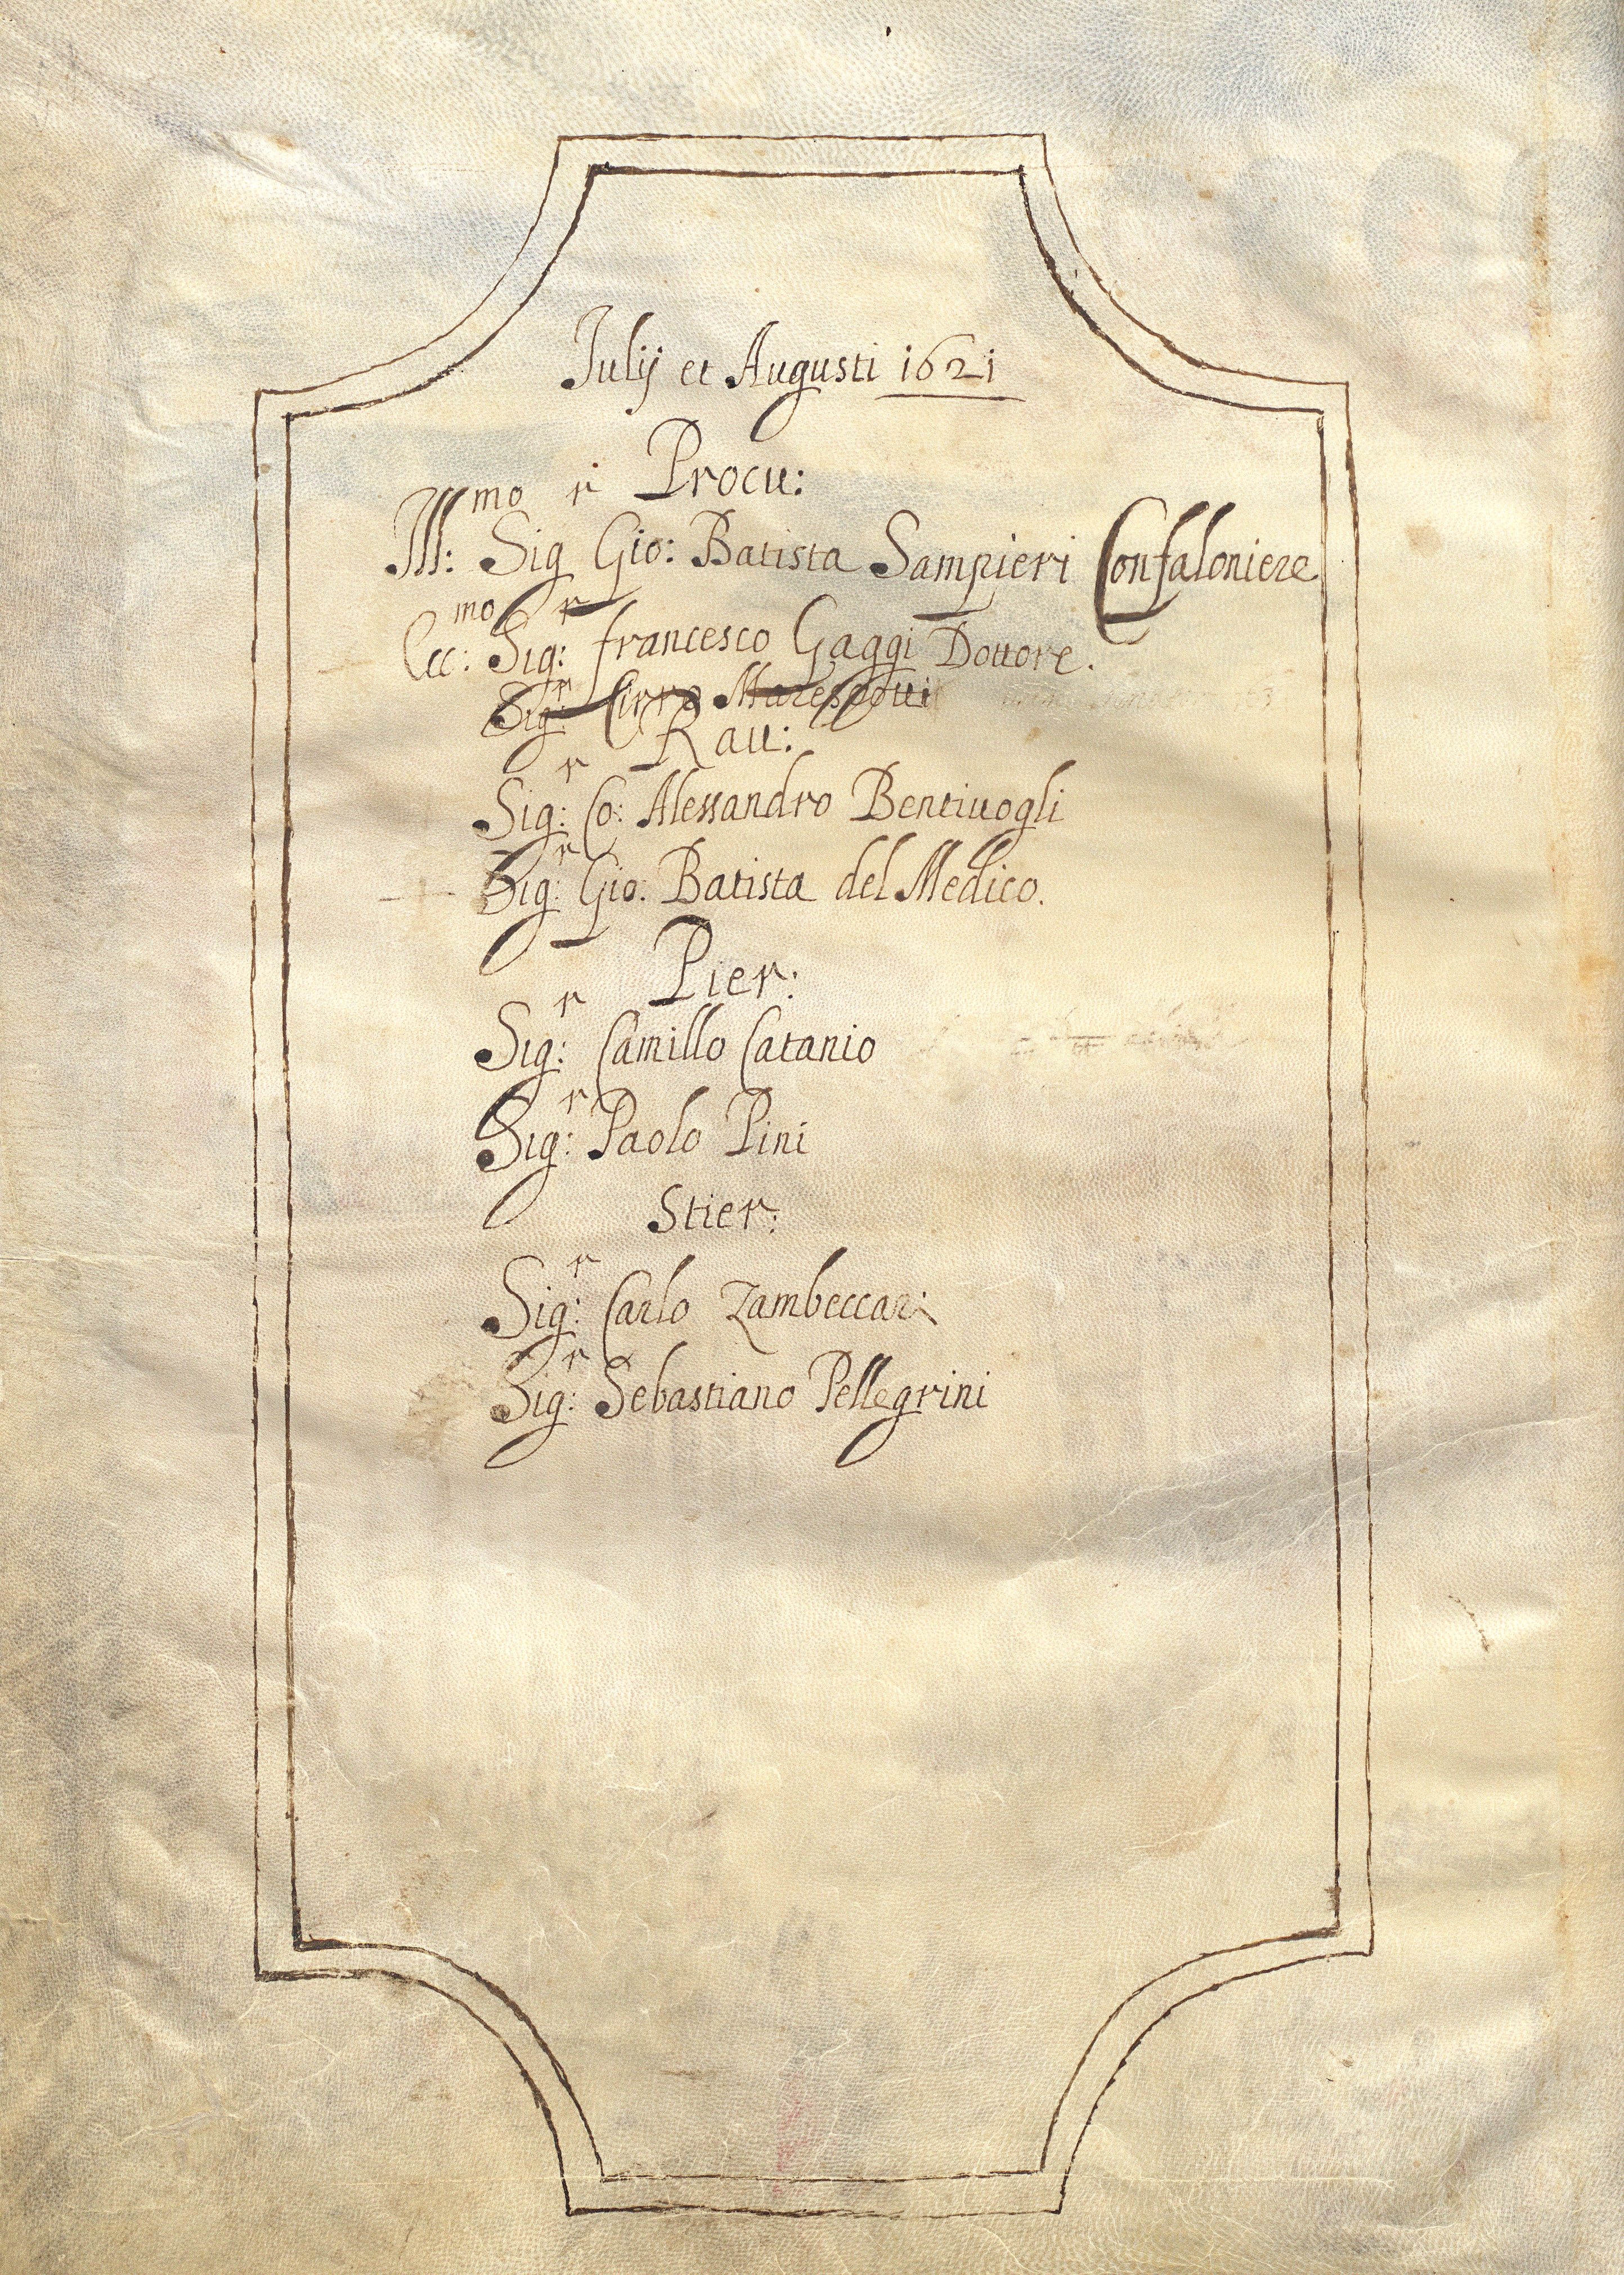 Iulij et Augusti 1621
Procu:
Ill:mo Sigr Gio: Batista Sampieri Confaloniere
Ecc:mo Sig:r francesco Gaggi Dottore.
Sig:r Cirro Marescotti
Rau:
Sig:r Co: Alessandro Bentiuogli
Sig:r Gio: Batista del Medico.
Pier:
Sig:r Camillo Catanio
Sig:r Paolo Pini
Stier:
Sig:r Carlo Zambeccari
Sig:r Sebastiano Pellegrini